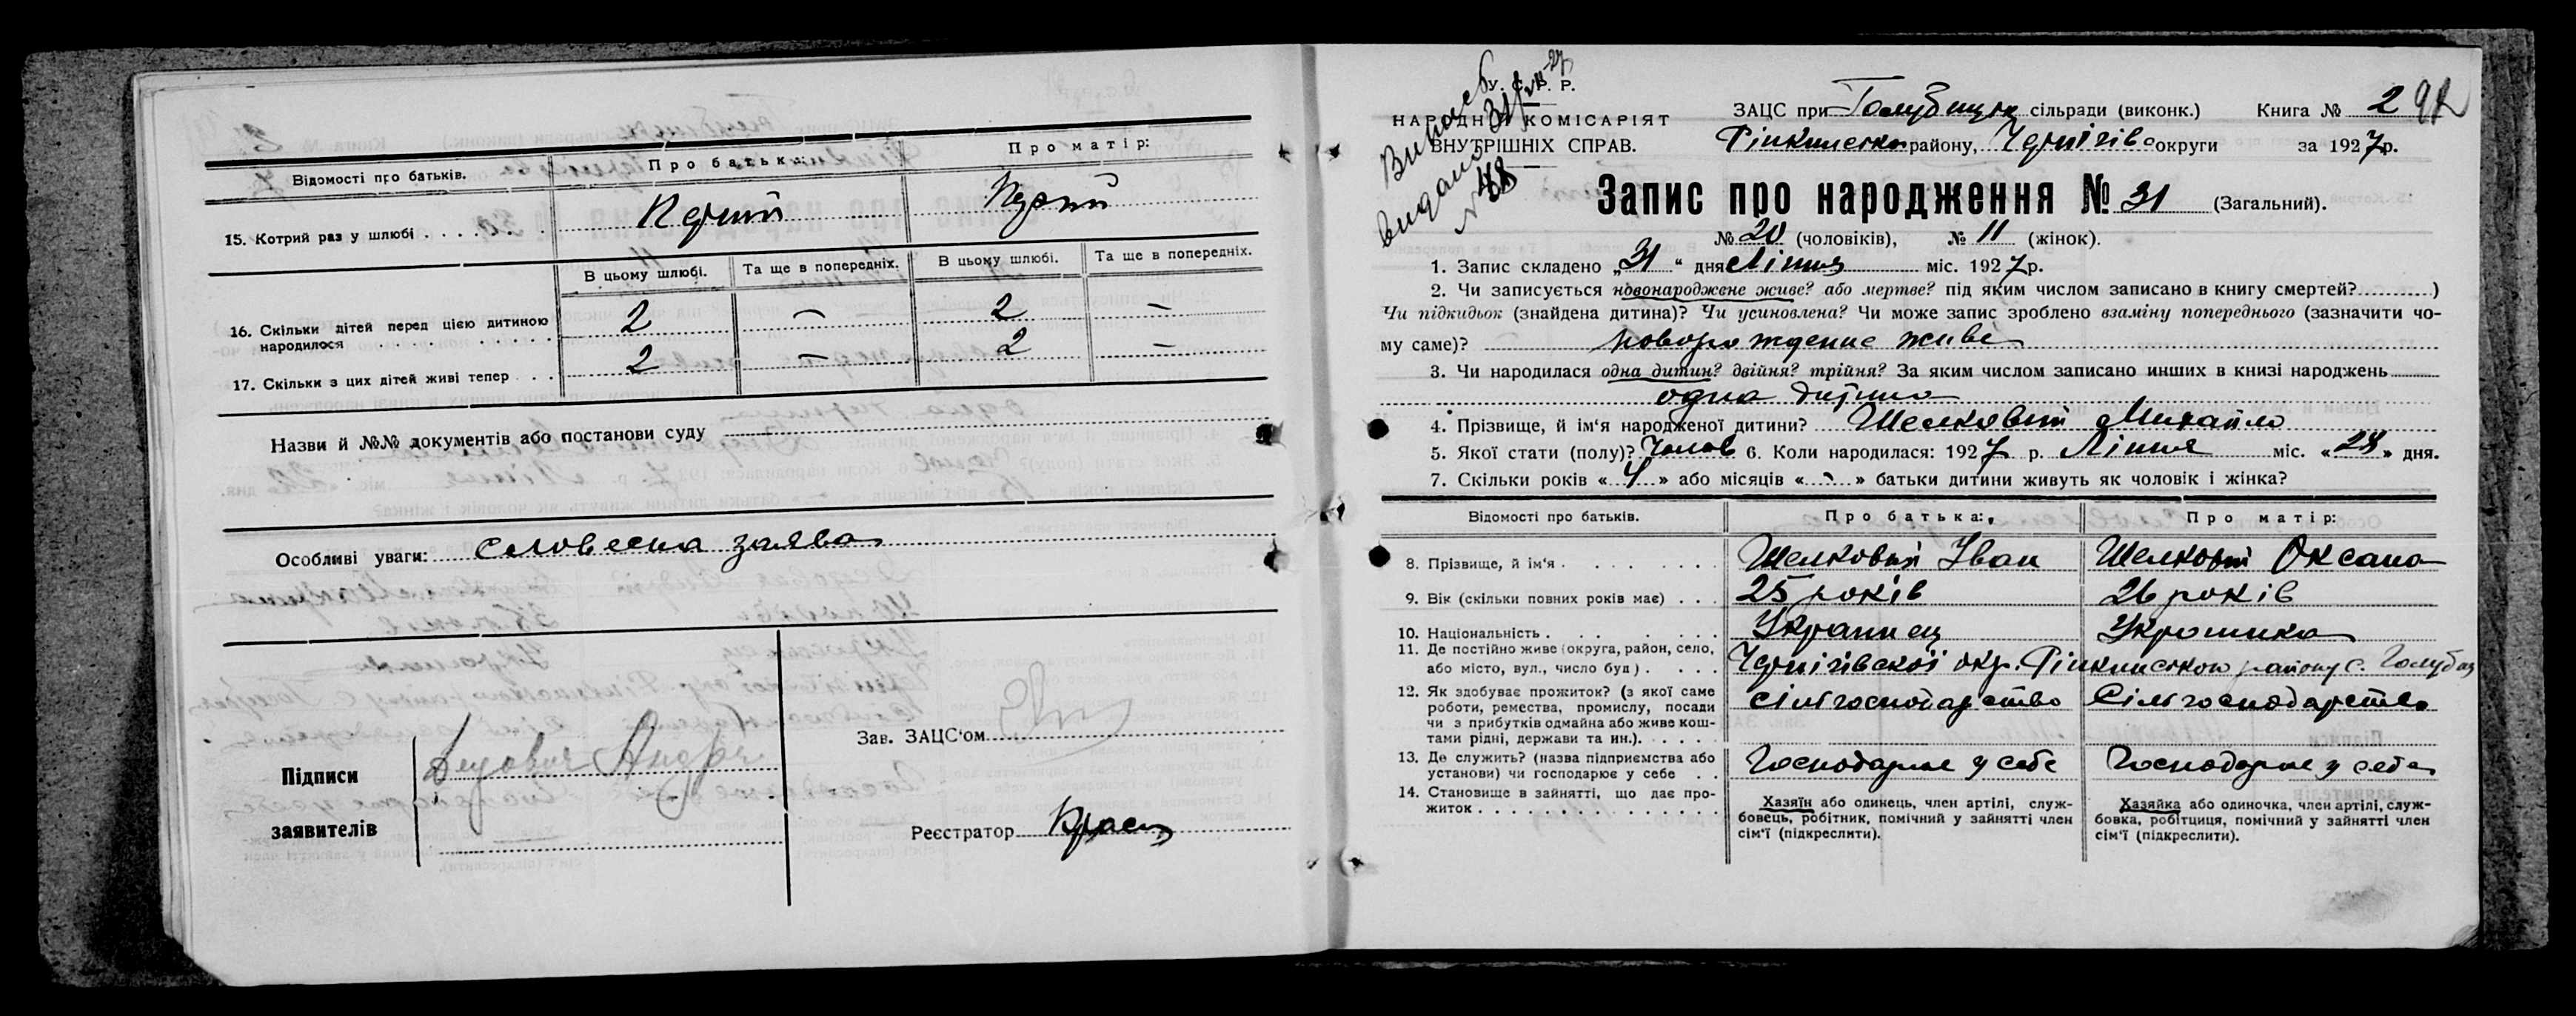 Відомості про батьків.
Про батька:
Про матір:
15. Котрий раз у шлюбі
Перший
Перший
В цьому шлюбі.
Та ще в попередніх.
В цьому шлюбі.
Та ще в попередніх.
16. Скільки дітей перед цією дитиною
народилося
2 — 2 —
17. Скільки з цих дітей живі тепер
2 — 2 —
Назви й №№ документів або постанови суду
Особливі уваги: словесна заява
Підписи
заявителів
Зав. ЗАЦС'ом
Реєстратор
У. С. Р. Р.
НАРОДНІЙ КОМІСАРІЯТ
ВНУТРІШНІХ СПРАВ.
№ 48
ЗАЦС при сільради (виконк.)
Книга № 2
району, Чернігівс округи
за 1927р.
Запис про народження № 31 (Загальний).
№ 20 (чоловіків), № 11 (жінок).
1. Запис складено „31“ дня Липня міс. 1927р.
2. Чи записується новонароджене живе? або мертве? під яким числом записано в книгу смертей? )
Чи підкидьок (знайдена дитина)? Чи усиновлена? Чи може запис зроблено взаміну попереднього (зазначити чо-
му саме)? живе
3. Чи народилася одна дитин? двійня? трійня? За яким числом записано инших в книзі народжень
одна дитина
4. Прізвище, й ім'я народженої дитини? Шелковий Михайло
5. Якої стати (полу)? Чолов 6. Коли народилася: 1927 р. Липня міс. «28» дня.
7. Скільки років «4» або місяців «-» батьки дитини живуть як чоловік і жінка?
Відомості про батьків.
Про батька:
Про матір:
8. Прізвище, й ім'я
Шелковый Іван
Шелковий Оксана
9. Вік (скільки повних років має)
25 років
26 років
10. Національність
Українец
Украинка
11. Де постійно живе (округа, район, село,
або місто, вул., число буд)
Чернігівскої окр. району с.
12. Як здобуває прожиток? (з якої саме
роботи, ремества, промислу, посади
чи з прибутків одмайна або живе кош-
тами рідні, держави та ин.).
сільгосподарство
Сільгосподарство
13. Де служить? (назва підприємства або
установи) чи господарює у себе
Господарює у себе
Господарює у себе
14. Становище в зайнятті, що дає про-
житок
Хазяїн або одинець, член артілі, служ-
бовець, робітник, помічний у зайнятті член
сім'ї (підкреслити).
Хазяйка або одиночка, член артілі, служ-
бовка, робітциця, помічний у зайнятті член
сім'ї (підкреслити).